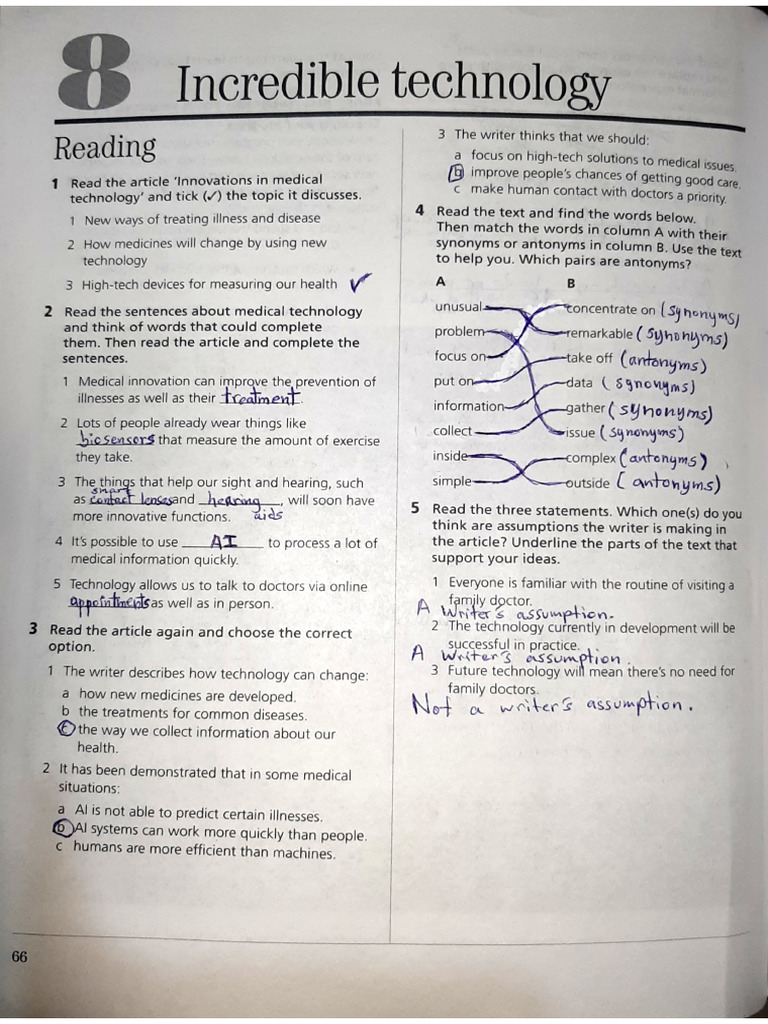 8
Incredible technology
Reading
1 Read the article 'Innovations in medical
technology' and tick (✓) the topic it discusses.
1 New ways of treating illness and disease
2 How medicines will change by using new
technology
3 High-tech devices for measuring our health ✓
2 Read the sentences about medical technology
and think of words that could complete
them. Then read the article and complete the
sentences.
1 Medical innovation can improve the prevention of
illnesses as well as their treatment.
2 Lots of people already wear things like
biosensors that measure the amount of exercise
they take.
3 The things that help our sight and hearing, such
as smart contact lenses and hearing aids, will soon have
more innovative functions.
4 It's possible to use AI to process a lot of
medical information quickly.
5 Technology allows us to talk to doctors via online
appointments as well as in person.
3 Read the article again and choose the correct
option.
1 The writer describes how technology can change:
a how new medicines are developed.
b the treatments for common diseases.
c the way we collect information about our
health.
2 It has been demonstrated that in some medical
situations:
a AI is not able to predict certain illnesses.
b AI systems can work more quickly than people.
c humans are more efficient than machines.
3 The writer thinks that we should:
a focus on high-tech solutions to medical issues.
b improve people's chances of getting good care.
c make human contact with doctors a priority.
4 Read the text and find the words below.
Then match the words in column A with their
synonyms or antonyms in column B. Use the text
to help you. Which pairs are antonyms?
A B
unusual concentrate on (synonyms)
problem remarkable (synonyms)
focus on take off (antonyms)
put on data (synonyms)
information gather (synonyms)
collect issue (synonyms)
inside complex (antonyms)
simple outside (antonyms)
5 Read the three statements. Which one(s) do you
think are assumptions the writer is making in
the article? Underline the parts of the text that
support your ideas.
1 Everyone is familiar with the routine of visiting a
family doctor.
A writer's assumption.
2 The technology currently in development will be
successful in practice.
A writer's assumption.
3 Future technology will mean there's no need for
family doctors.
Not a writer's assumption.
66